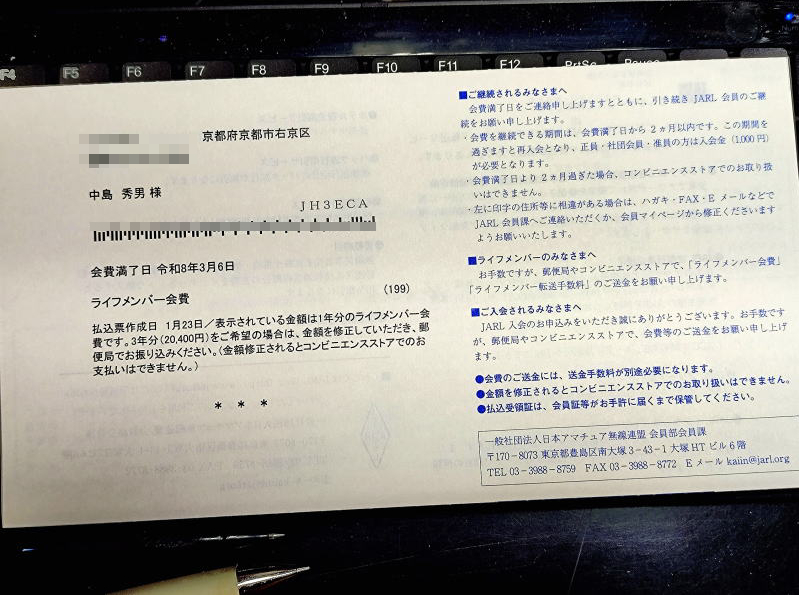 F4 F5 F6 F7 F8 F9 F10 F11 F12 PrtSc Pause
京都府京都市右京区
中島 秀男 様
JH3ECA
会費満了日 令和8年3月6日
(199)
ライフメンバー会費
払込票作成日 1月23日/表示されている金額は1年分のライフメンバー会
費です。3年分(20,400円)をご希望の場合は、金額を修正していただき、郵
便局でお振り込みください。(金額修正されるとコンビニエンスストアでのお
支払いはできません。)
* * *
■ご継続されるみなさまへ
会費満了日をご連絡申し上げますとともに、引き続き JARL 会員のご継
続をお願い申し上げます。
・会費を継続できる期間は、会費満了日から 2 ヵ月以内です。この期間を
過ぎますと再入会となり、正員・社団会員・准員の方は入会金 (1,000 円)
が必要となります。
・会費満了日より 2 ヵ月過ぎた場合、コンビニエンスストアでのお取り扱
いはできません。
・左に印字の住所等に相違がある場合は、ハガキ・FAX・E メールなどで
JARL 会員課へご連絡いただくか、会員マイページから修正くださいます
ようお願いいたします。
■ライフメンバーのみなさまへ
お手数ですが、郵便局やコンビニエンスストアで、「ライフメンバー会費」
「ライフメンバー転送手数料」のご送金をお願い申し上げます。
■ご入会されるみなさまへ
JARL 入会のお申込みをいただき誠にありがとうございます。お手数です
が、郵便局やコンビニエンスストアで、会費等のご送金をお願い申し上げ
ます。
●会費のご送金には、送金手数料が別途必要になります。
●金額を修正されるとコンビニエンスストアでのお取り扱いはできません。
●払込受領証は、会員証等がお手許に届くまで保管してください。
一般社団法人日本アマチュア無線連盟 会員部会員課
〒170-8073 東京都豊島区南大塚 3-43-1 大塚 HT ビル 6 階
TEL 03-3988-8759 FAX 03-3988-8772 E メール kaiin@jarl.org